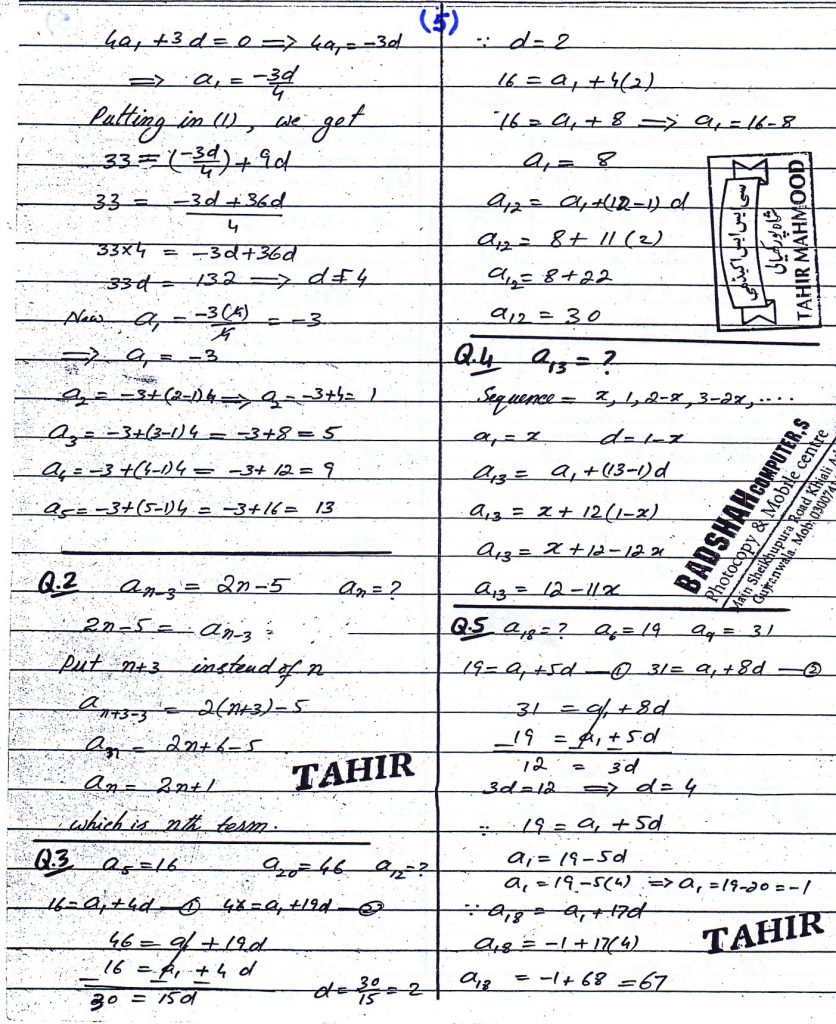 (5)
4a₁ + 3d = 0 ⟹ 4a₁ = -3d
⟹ a₁ = -3d/4
Putting in (1), we get
33 = (-3d/4) + 9d
33 = (-3d + 36d)/4
33×4 = -3d + 36d
33d = 132 ⟹ d = 4
Now a₁ = -3(4)/4 = -3
⟹ a₁ = -3
a₂ = -3+(2-1)4 ⟹ a₂ = -3+4 = 1
a₃ = -3+(3-1)4 = -3+8 = 5
a₄ = -3+(4-1)4 = -3+12 = 9
a₅ = -3+(5-1)4 = -3+16 = 13
Q.2 aₙ₋₃ = 2n-5 aₙ = ?
2n-5 = aₙ₋₃
Put n+3 instead of n
aₙ₊₃₋₃ = 2(n+3)-5
aₙ = 2n+6-5
aₙ = 2n+1
which is nth term.
TAHIR
Q.3 a₅ = 16 a₂₀ = 46 a₁₂ = ?
16 = a₁ + 4d —① 46 = a₁ + 19d —②
46 = a₁ + 19d
-16 = -a₁ + 4d
30 = 15d d = 30/15 = 2
∵ d = 2
16 = a₁ + 4(2)
16 = a₁ + 8 ⟹ a₁ = 16-8
a₁ = 8
a₁₂ = a₁ + (12-1) d
a₁₂ = 8 + 11(2)
a₁₂ = 8 + 22
a₁₂ = 30
سی ایس ایس اکیڈمی
TAHIR MAHMOOD
Q.4 a₁₃ = ?
Sequence = x, 1, 2-x, 3-2x, ....
a₁ = x d = 1-x
a₁₃ = a₁ + (13-1)d
a₁₃ = x + 12(1-x)
a₁₃ = x + 12 - 12x
a₁₃ = 12 - 11x
BADSHAH COMPUTER,S
Photocopy & Mobile centre
Main Sheikhupura Road Khiali
Gujranwala. Mob:
Q.5 a₁₈ = ? a₆ = 19 a₉ = 31
19 = a₁ + 5d —① 31 = a₁ + 8d —②
31 = a₁ + 8d
-19 = -a₁ ± 5d
12 = 3d
3d = 12 ⟹ d = 4
∵ 19 = a₁ + 5d
a₁ = 19 - 5d
a₁ = 19 - 5(4) ⟹ a₁ = 19-20 = -1
∵ a₁₈ = a₁ + 17d
a₁₈ = -1 + 17(4)
a₁₈ = -1 + 68 = 67
TAHIR